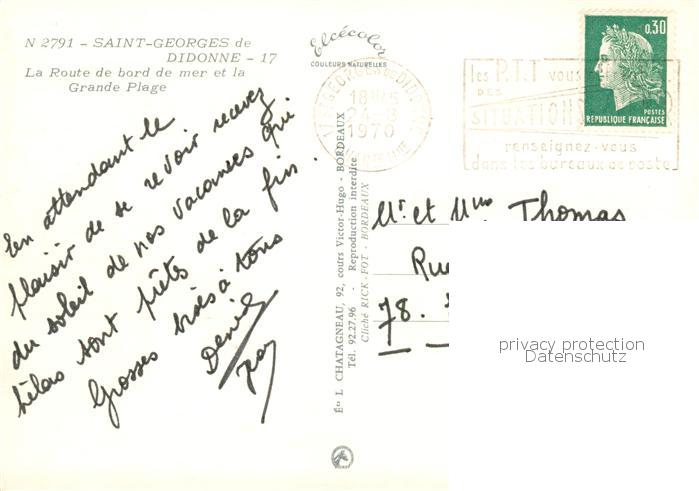 N 2791 – SAINT-GEORGES de
DIDONNE – 17
La Route de bord de mer et la
Grande Plage
Elcécolor
COULEURS NATURELLES
ST GEORGES DE DIDONNE
18H
24
1970
0,30
POSTES
REPUBLIQUE FRANÇAISE
les P.T.T vous
DES
SITUATIONS
renseignez-vous
dans les bureaux de poste
En attendant le
plaisir de se revoir recevez
du soleil de nos vacances qui
hélas sont prêtes de la fin.
Grosses bises à tous
Denis
Mr et Mme Thomas
Rue
78.
Éd L CHATAGNEAU, 92, cours Victor-Hugo - BORDEAUX
Tél. 92.27.96 - Reproduction interdite
Cliché RICK-FOT - BORDEAUX
privacy protection
Datenschutz